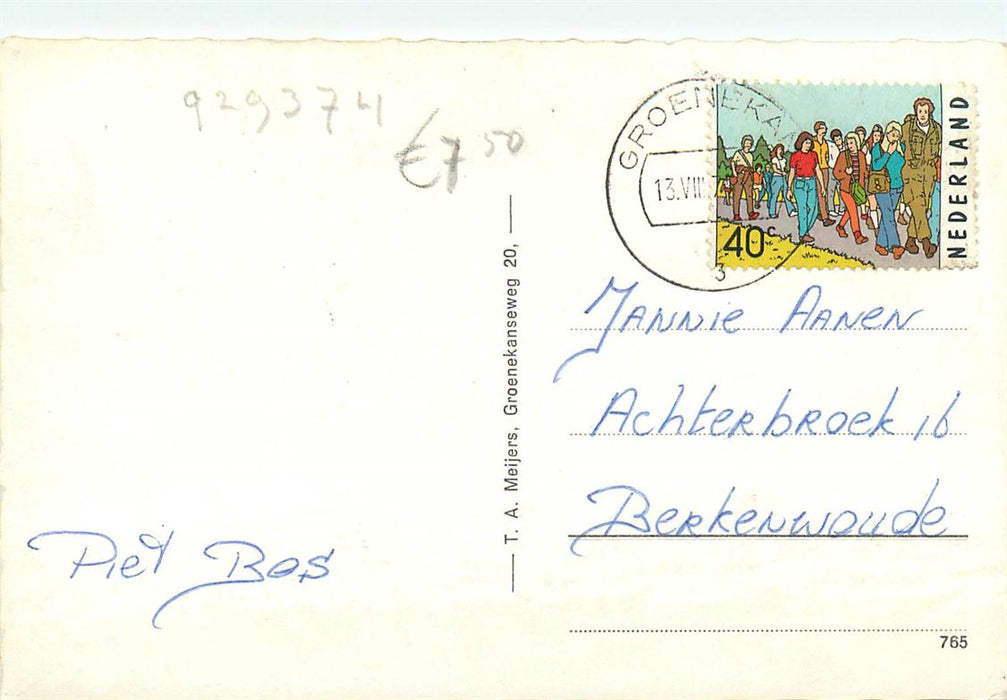 929374
€7 50
GROENEKA
13.VIII
3
40c
NEDERLAND
T. A. Meijers, Groenekanseweg 20,
Jannie Aanen
Achterbroek 16
Berkenwoude
Piet Bos
765